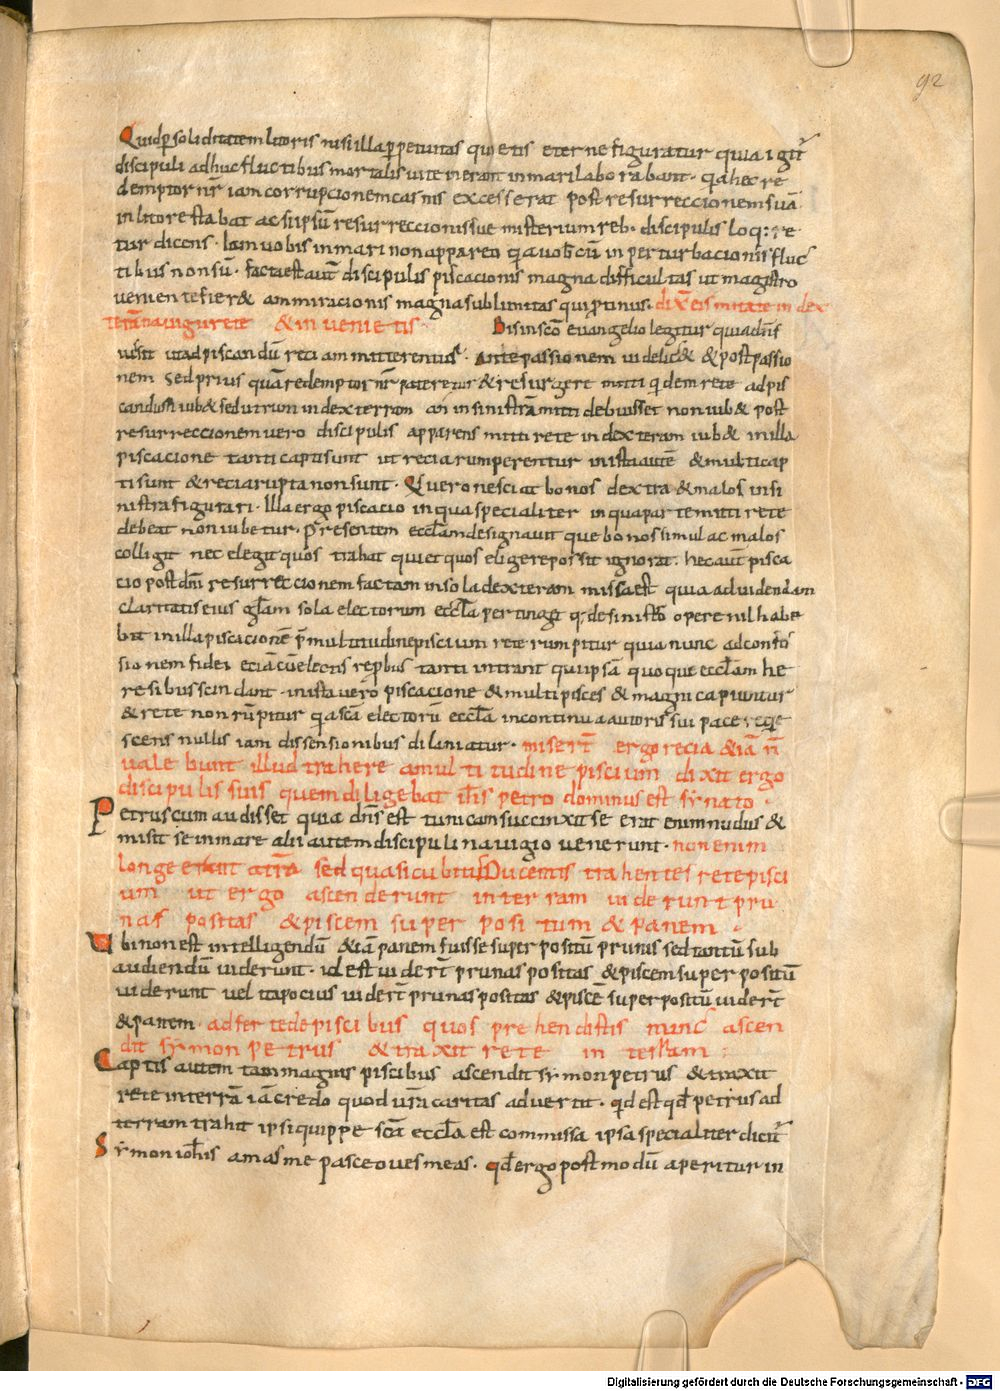 92
Quid p soliditatem litoris nisi illa ppetuitas quietis eterne figuratur quia igit
discipuli adhuc fluctibus mortalis uite inerant in mari laborabant · qa hec re
demptor nr iam corrupcionem carnis excesserat post resurreccionem suā
in litore stabat ac si ipsū resurreccionis sue misterium reb · discipulis loq: re
tur dicens · Iam uobis in mari non appareo qa uobcū in perturbacionis fluc
tibus non sū · facta est aut discipulis piscacionis magna difficultas ut magistro
ueniente fier& ammiracionis magna sublimitas qui ptinus · dix eis mitate in dex
terā nauigii rete & inuenietis · Bis in sco euangelio legitur quia dns
iussit ut ad piscandū recia mitterentur · ante passionem uidelic& & post passio
nem sed prius quā redemptor nr pateretur & resurgere mitti qdem rete ad pis
candum iub& sed utrum in dexterram an in sinistrā mitti debuisset non iub& post
resurreccionem uero discipulis apparens mitti rete in dexteram iub& in illa
piscacione tanti capti sunt ut recia rumperentur in ista autē & multi cap
ti sunt & recia rupta non sunt · Quero nesciat bonos dextra & malos in si
nistra figurari · Illa ergo piscacio in qua specialiter in qua partem mitti rete
debeat non iubetur · Presentem ecclam designauit que bonos simul ac malos
colligit nec elegit quos trahat qui et quos eligere possit ignorat · hec aut pisca
cio post dni resurreccionem factam in sola dexteram missa est quia ad uidendam
claritatis eius glam sola electorum eccla pertingit q; de sinistro opere nil habe
bit in illa piscacionē p multitudine piscium rete rumpitur quia nunc ad confes
sionem fidei eciā cū electis repbus tanti intrant qui ipsā quoque ecclam he
resibus scindant · in ista uero piscacione & multi pisces & magni capiuntur
& rete non rūpitur qa scā electorū eccla in continua autoris sui pace reqie
scens nullis iam dissensionibus dilaniatur · miserT ergo recia & iā n
uale bunt illud trahere a multitudine piscium dixit ergo
discipulis suis quem diligebat ihs petro dominus est symo ·
Petrus cum audisset quia dns est tunicam succinxit se erat enim nudus &
misit se in mare alii autem discipuli nauigio uenerunt · non enim
longe erant a tra sed quasi cubitis Ducentis trahentes rete pisci
um ut ergo ascenderunt in terram uiderunt pru
nas positas & piscem super positum & panem ·
Ubi non est intelligendū & iā panem fuisse super positū prunis sed tantū sub
audiendū uiderunt · id est uiderT prunas positas & piscem super positū
uiderunt uel ita pocius uiderT prunas positas & piscē super positū uiderT
& panem · adferte de piscibus quos prehendistis nunc ascen
dit symon petrus & traxit rete in terram :
Captis autem tam magnis piscibus ascendit symon petrus & traxit
rete in terrā iā credo quod ura caritas aduertit · qd est qd petrus ad
terram trahit ipsi quippe scā eccla est commissa ipsa specialiter dicit
Symon iohis amas me pasce oues meas · qd ergo postmodū aperitur in
Digitalisierung gefördert durch die Deutsche Forschungsgemeinschaft - DFG